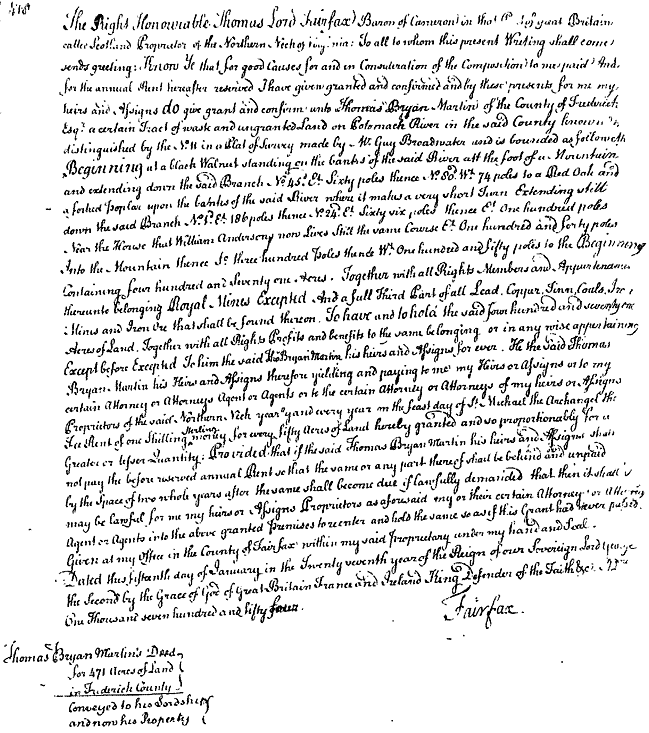 418
The Right Honourable Thomas Lord Fairfax Baron of Cameron in that Part of Great Britain
called Scotland Proprietor of the Northern Neck of Virginia: To all to whom this present Writing shall come
sends greeting: Know Ye that for good Causes for and in Consideration of the Composition to me paid And
for the annual Rent hereafter reserved I have given granted and confirmed and by these presents for me my
heirs and Assigns do give grant and confirm unto Thomas Bryan Martin of the County of Frederick
Esqr. a certain Tract of waste and ungranted Land on Potomack River in the said County known
distinguished by the No. 11 in a Plat of Survey made by Mr. Guy Broadwater and is bounded as followeth
Beginning at a black Walnut standing on the banks of the said River att the foot of a Mountain
and extending down the said Branch No. 45. Et. Sixty poles thence No. 80. Wt. 74 poles to a Red Oak and
a forked Poplar upon the banks of the said River where it makes a very short Turn Extending still
down the said Branch No. 1. Et. 186 poles thence No. 24. Et. Sixty six poles thence Et. One hundred poles
Near the House that William Anderson now Lives Still the same Course Et. One hundred and forty poles
Into the Mountain thence So. three hundred Poles thence Wt. One hundred and fifty poles to the Beginning
Containing four hundred and Seventy one Acres. Together with all Rights Members and Appurtenances
thereunto belonging Royal Mines Excepted And a full Third Part of all Lead, Copper, Tinn, Coals, Iron
Mines and Iron Ore that shall be found thereon. To have and to hold the said four hundred and seventy one
Acres of Land. Together with all Rights Profits and benefits to the same belonging or in any wise appertaining
Except before Excepted To him the said Thos. Bryan Martin his heirs and Assigns for ever. He the said Thomas
Bryan Martin his Heirs and Assigns therefore yielding and paying to me my Heirs or Assigns or to my
certain Attorney or Attorneys Agent or Agents or to the certain Attorney or Attorneys of my heirs or Assigns
Proprietors of the said Northern Neck yearly and every year on the feast day of St. Michael the Archangel the
Fee Rent of one Shilling Sterling money for every fifty Acres of Land hereby granted and so proportionably for a
Greater or lesser Quantity: Provided that if the said Thomas Bryan Martin his heirs and Assigns shall
not pay the before reserved annual Rent so that the same or any part thereof shall be behind and unpaid
by the Space of two whole years after the same shall become due if lawfully demanded that then it shall
may be lawful for me my heirs or Assigns Proprietors as aforesaid my or their certain Attorney or Attorneys
Agent or Agents into the above granted Premises to reenter and hold the same so as if this Grant had never passed.
Given at my Office in the County of Fairfax within my said Proprietary under my hand and Seal.
Dated this fifteenth day of January in the Twenty seventh year of the Reign of our Sovereign Lord George
the Second by the Grace of God of Great Britain France and Ireland King Defender of the Faith &c.
One Thousand seven hundred and fifty four.
Fairfax.
Thomas Bryan Martin's Deed
for 471 Acres of Land
in Frederick County
Conveyed to his Lordship
and now his Property